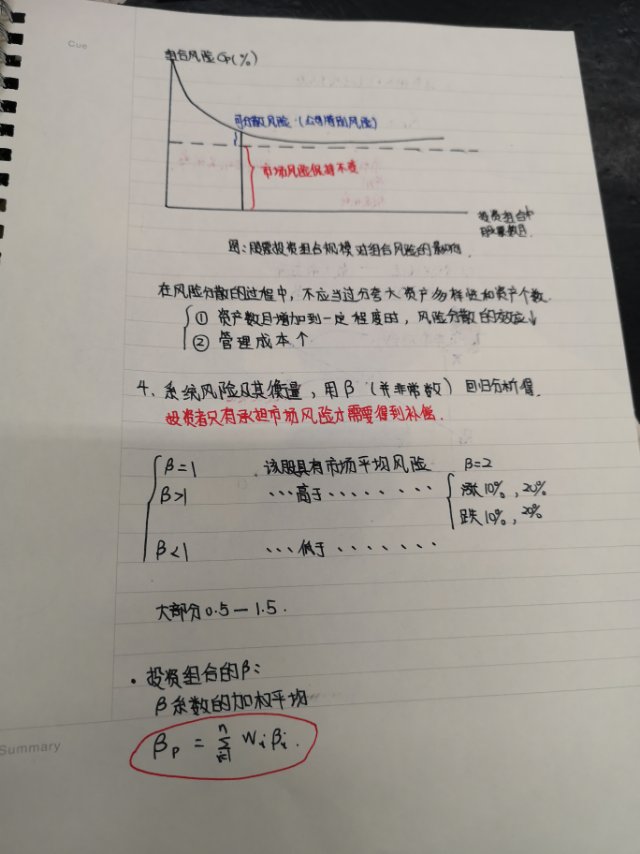 Cue
组合风险σp(%)
可分散风险 (公司特别风险)
市场风险保持不变
投资组合中
股票数目
图:股票投资组合规模对组合风险的影响.
在风险分散的过程中,不应当过分夸大资产多样性和资产个数.
① 资产数目增加到一定程度时,风险分散的效应↓
② 管理成本个
4、系统风险及其衡量,用β(并非常数)回归分析得.
投资者只有承担市场风险才需要得到补偿.
β=1 该股具有市场平均风险 β=2
β>1 ···高于········ 涨10%,20%
跌10%,20%
β<1 ···低于·······
大部分0.5—1.5.
· 投资组合的β:
β系数的加权平均
βp = ∑ⁿᵢ₌₁ Wi βi.
Summary